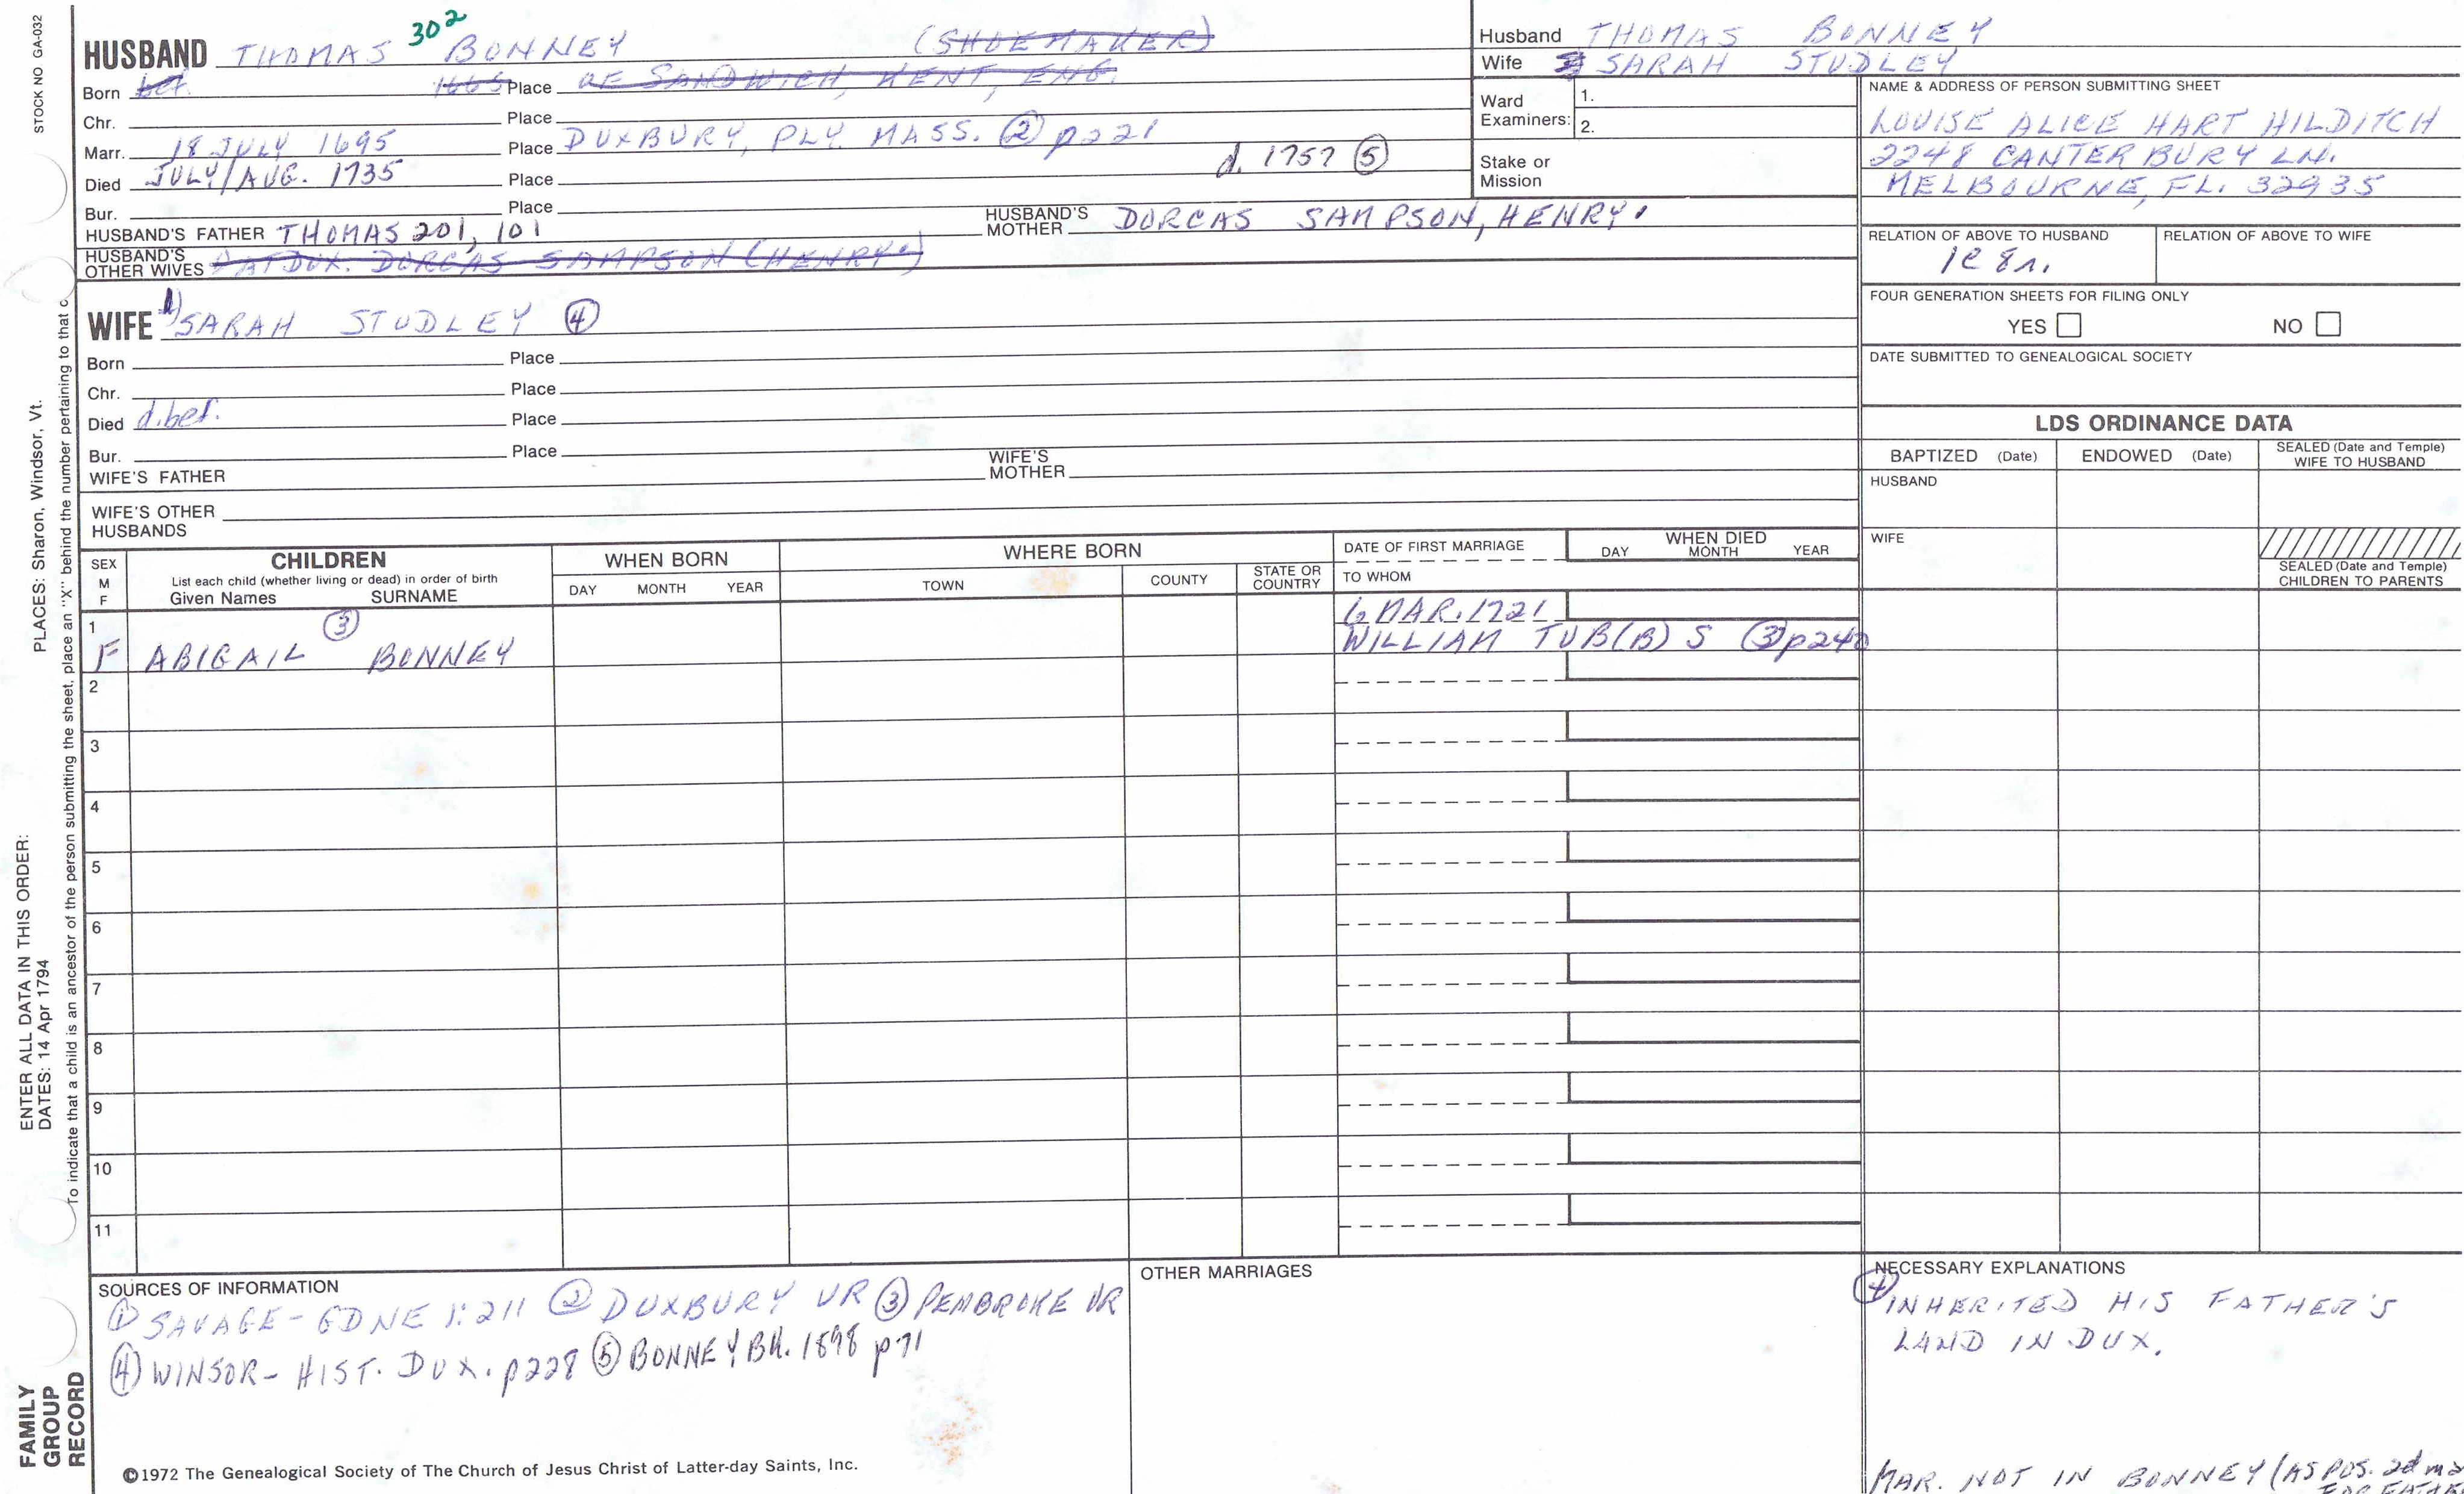 STOCK NO GA-032
HUSBAND THOMAS 302 BONNEY (SHOEMAKER)
Born bef. 1665 Place OF SANDWICH, KENT, ENG.
Chr. Place
Marr. 18 JULY 1695 Place DUXBURY, PLY. MASS. (2) p221
Died JULY/AUG. 1735 Place d. 1757 (5)
Bur. Place
HUSBAND'S FATHER THOMAS 201, 101 HUSBAND'S MOTHER DORCAS SAMPSON, HENRY
HUSBAND'S OTHER WIVES DUX. DORCAS SAMPSON (HENRY)
WIFE 1) SARAH STUDLEY (4)
Born Place
Chr. Place
Died d. bef. Place
Bur. Place
WIFE'S FATHER WIFE'S MOTHER
WIFE'S OTHER HUSBANDS
Husband THOMAS BONNEY
Wife SARAH STUDLEY
Ward Examiners: 1.
2.
Stake or Mission
NAME & ADDRESS OF PERSON SUBMITTING SHEET
LOUISE ALICE HART HILDITCH
2248 CANTERBURY LN.
MELBOURNE, FL. 32935
RELATION OF ABOVE TO HUSBAND RELATION OF ABOVE TO WIFE
1C 8r.
FOUR GENERATION SHEETS FOR FILING ONLY
YES NO
DATE SUBMITTED TO GENEALOGICAL SOCIETY
LDS ORDINANCE DATA
BAPTIZED (Date) ENDOWED (Date) SEALED (Date and Temple) WIFE TO HUSBAND
HUSBAND
WIFE
SEALED (Date and Temple) CHILDREN TO PARENTS
SEX M F
CHILDREN
List each child (whether living or dead) in order of birth
Given Names SURNAME
WHEN BORN
DAY MONTH YEAR
WHERE BORN
TOWN COUNTY STATE OR COUNTRY
DATE OF FIRST MARRIAGE
TO WHOM
WHEN DIED
DAY MONTH YEAR
1 F ABIGAIL (3) BONNEY 6 MAR. 1721
WILLIAM TUB(B)S (3) p240
2
3
4
5
6
7
8
9
10
11
SOURCES OF INFORMATION
(1) SAVAGE - GDNE 1:211 (2) DUXBURY VR (3) PEMBROKE VR
(4) WINSOR - HIST. DUX. p228 (5) BONNEY BK. 1898 p71
OTHER MARRIAGES
NECESSARY EXPLANATIONS
(4) INHERITED HIS FATHER'S
LAND IN DUX.
MAR. NOT IN BONNEY (AS POS. 2d
©1972 The Genealogical Society of The Church of Jesus Christ of Latter-day Saints, Inc.
PLACES: Sharon, Windsor, Vt.
To indicate that a child is an ancestor of the person submitting the sheet, place an "X" behind the number pertaining to that c
ENTER ALL DATA IN THIS ORDER:
DATES: 14 Apr 1794
FAMILY
GROUP
RECORD